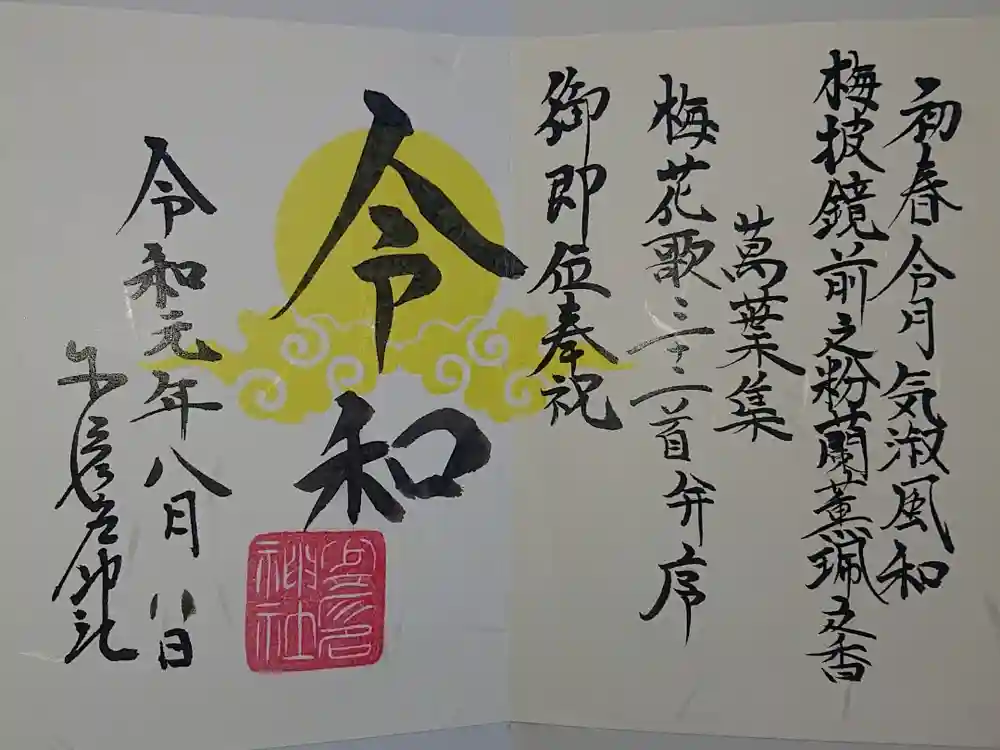 初春令月気淑風和
梅披鏡前之粉蘭薫珮之香
萬葉集
梅花歌三十二首弁序
御即位奉祝
令和
神社
令和元年八月八日